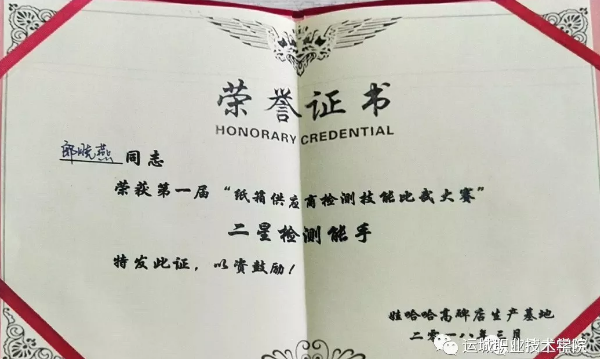 荣誉证书
HONORARY CREDENTIAL
郎晓燕 同志
荣获第一届“纸箱供应商检测技能比武大赛”
二星检测能手
特发此证，以资鼓励！
娃哈哈高碑店生产基地
二零一八年三月
运城职业技术学院